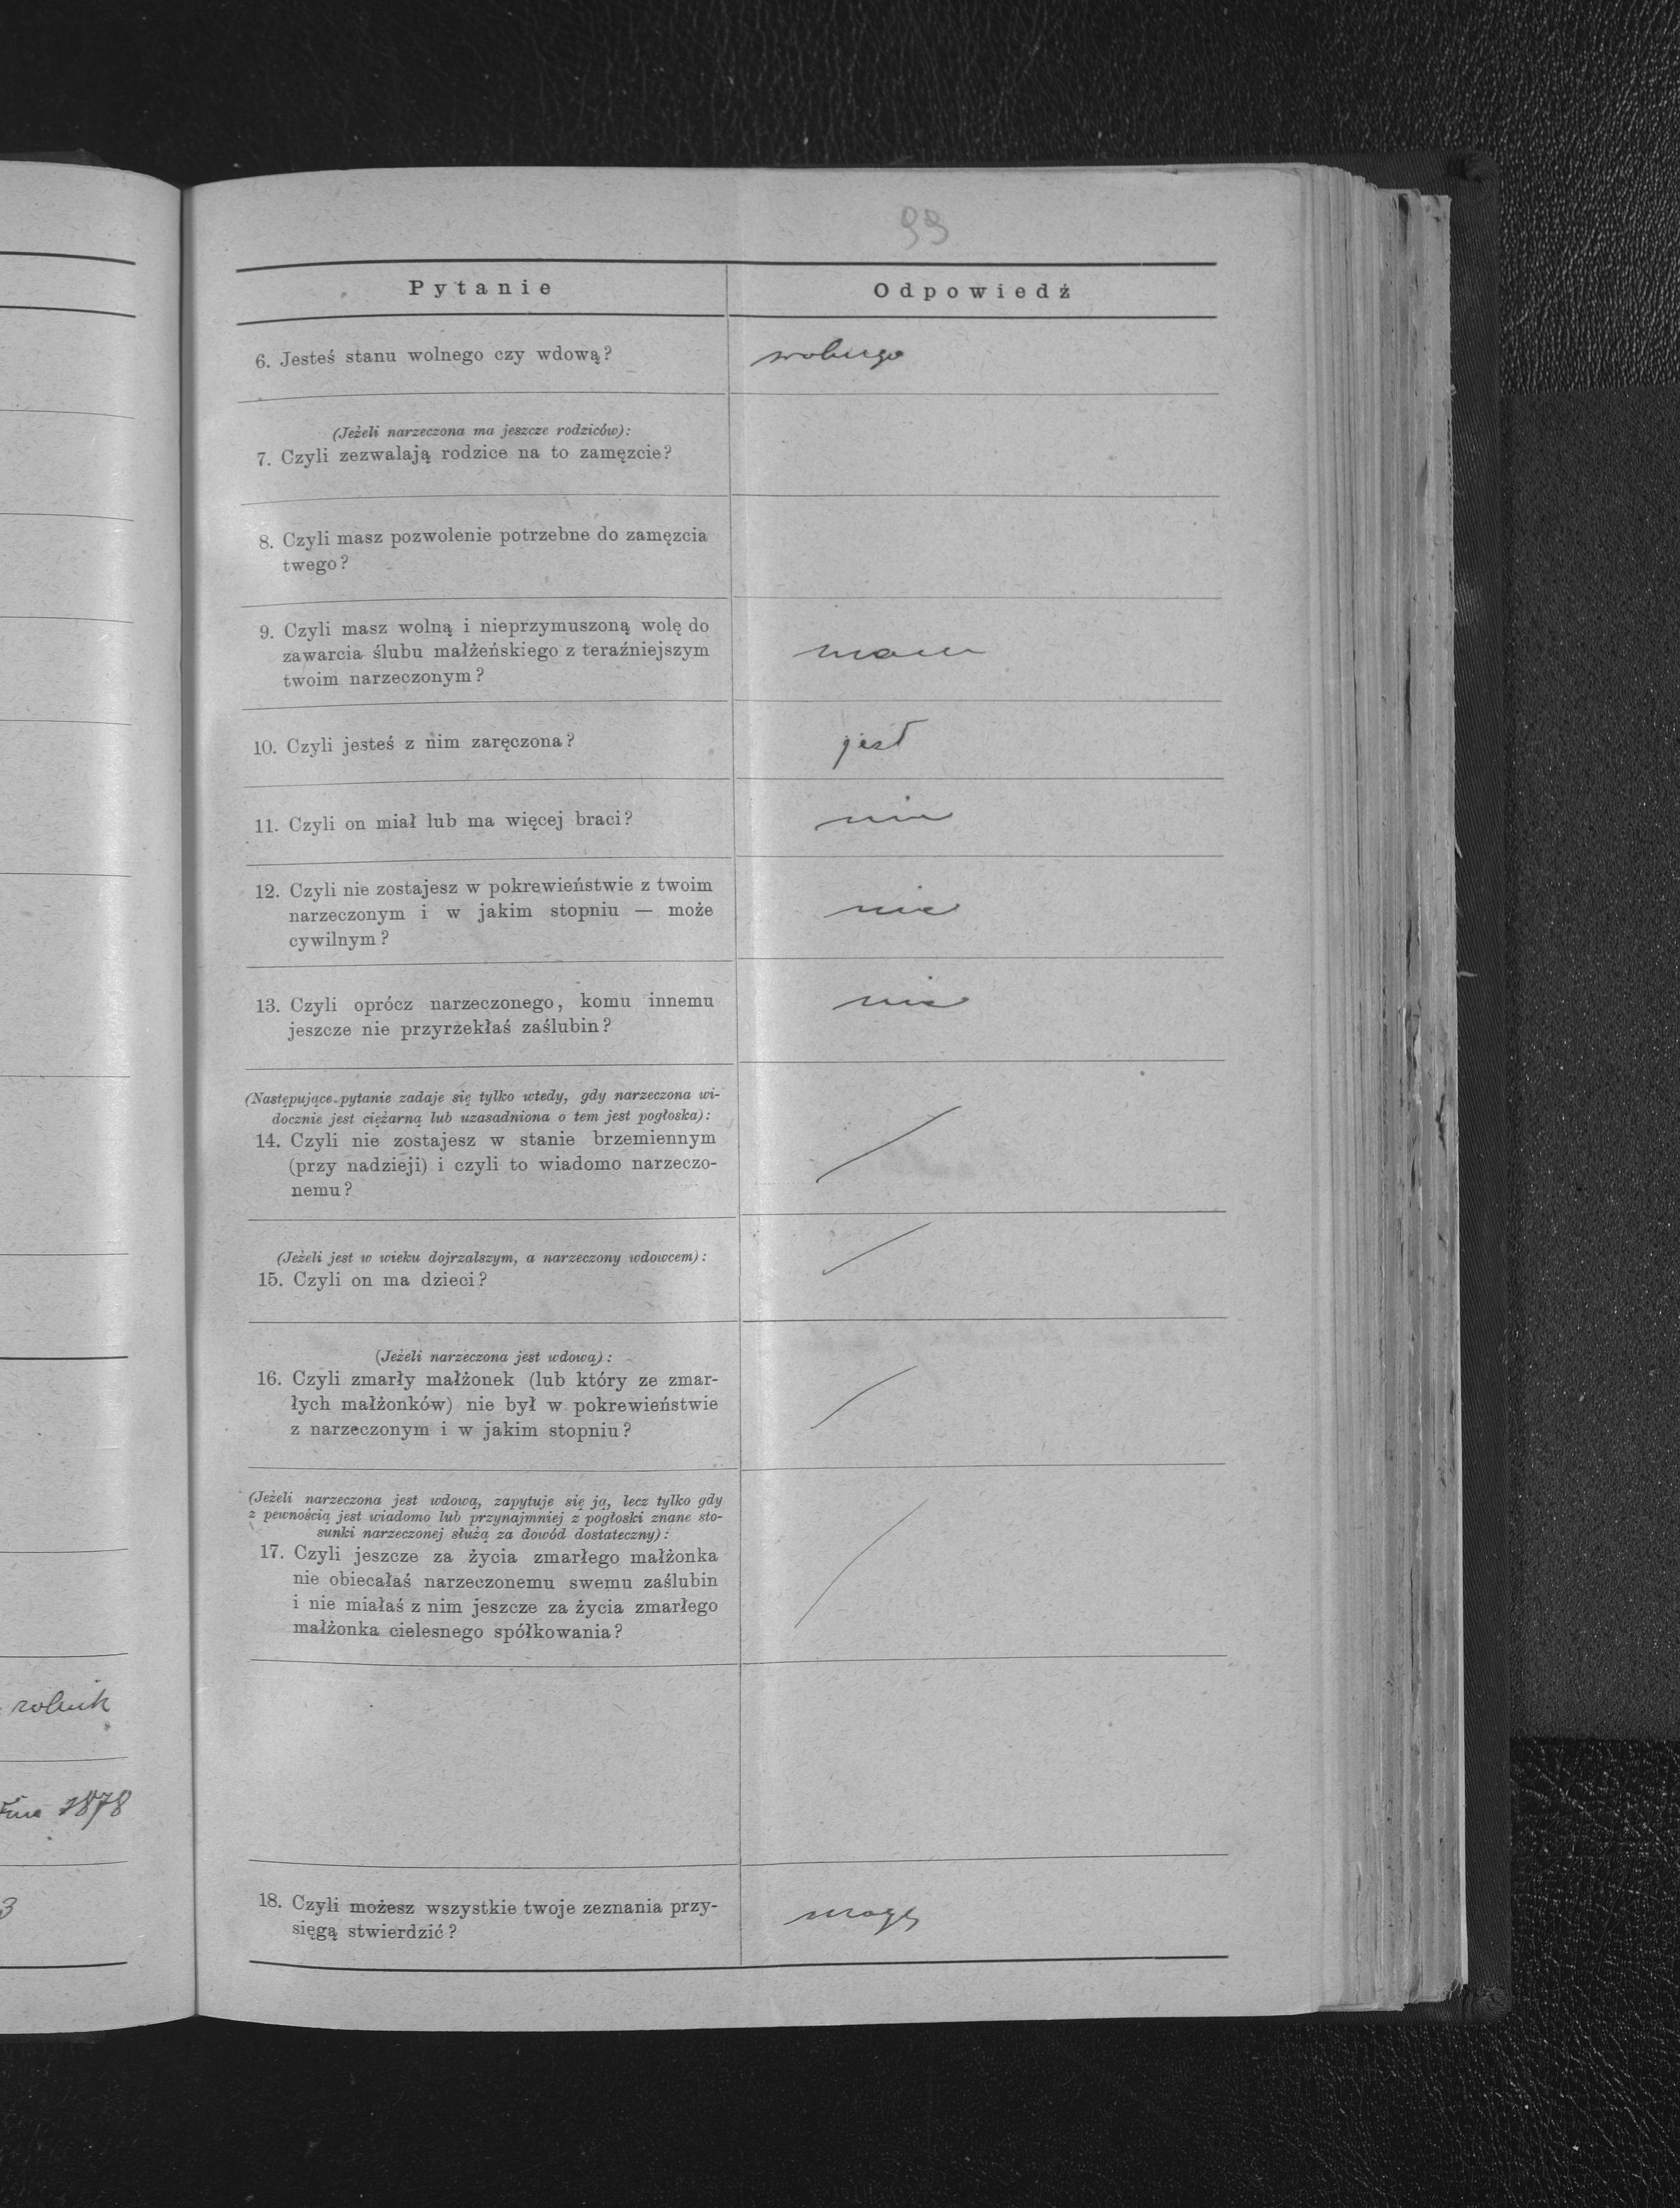 99
Pytanie
Odpowiedź
6. Jesteś stanu wolnego czy wdową?
wolnego
(Jeżeli narzeczona ma jeszcze rodziców):
7. Czyli zezwalają rodzice na to zamęzcie?
8. Czyli masz pozwolenie potrzebne do zamęzcia
twego?
9. Czyli masz wolną i nieprzymuszoną wolę do
zawarcia ślubu małżeńskiego z teraźniejszym
twoim narzeczonym?
mam
10. Czyli jesteś z nim zaręczona?
jest
11. Czyli on miał lub ma więcej braci?
nie
12. Czyli nie zostajesz w pokrewieństwie z twoim
narzeczonym i w jakim stopniu — może
cywilnym?
nie
13. Czyli oprócz narzeczonego, komu innemu
jeszcze nie przyrzekłaś zaślubin?
nie
(Następujące pytanie zadaje się tylko wtedy, gdy narzeczona wi-
docznie jest ciężarną lub uzasadniona o tem jest pogłoska):
14. Czyli nie zostajesz w stanie brzemiennym
(przy nadzieji) i czyli to wiadomo narzeczo-
nemu?
(Jeżeli jest w wieku dojrzalszym, a narzeczony wdowcem):
15. Czyli on ma dzieci?
(Jeżeli narzeczona jest wdową):
16. Czyli zmarły małżonek (lub który ze zmar-
łych małżonków) nie był w pokrewieństwie
z narzeczonym i w jakim stopniu?
(Jeżeli narzeczona jest wdową, zapytuje się ją, lecz tylko gdy
z pewnością jest wiadomo lub przynajmniej z pogłoski znane sto-
sunki narzeczonej służą za dowód dostateczny):
17. Czyli jeszcze za życia zmarłego małżonka
nie obiecałaś narzeczonemu swemu zaślubin
i nie miałaś z nim jeszcze za życia zmarłego
małżonka cielesnego spółkowania?
18. Czyli możesz wszystkie twoje zeznania przy-
sięgą stwierdzić?
mogę
rolnik
1878
3